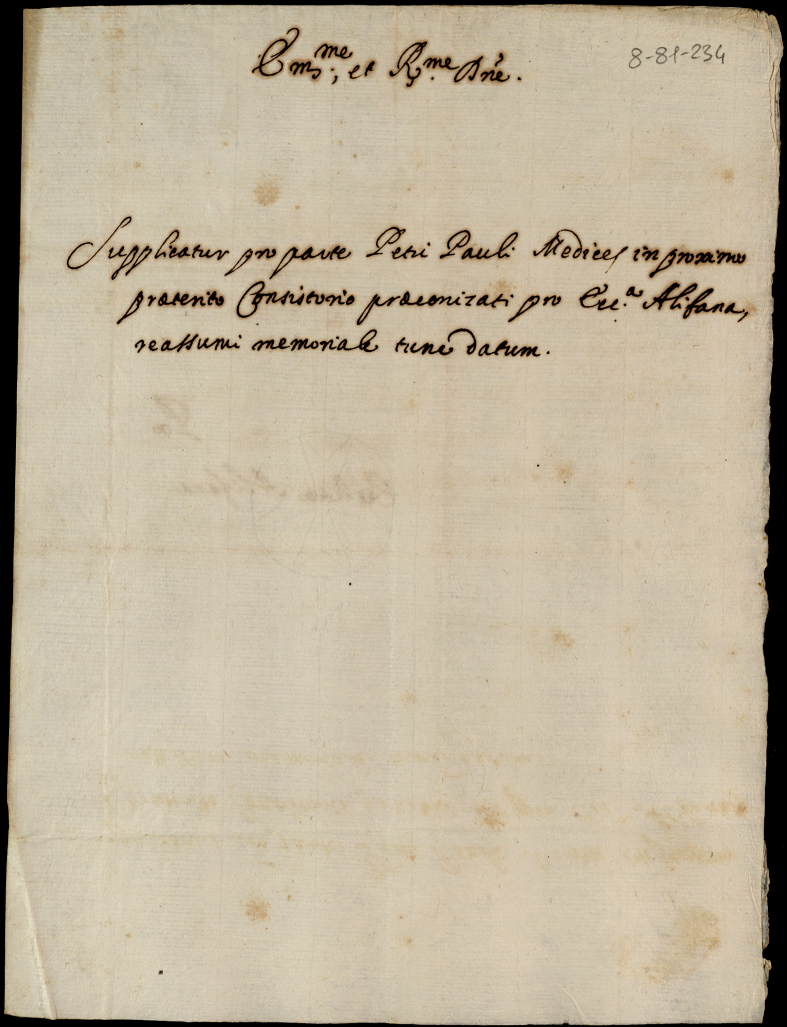 Em.me, et R.me Dne.
8-81-234
Supplicatur pro parte Petri Pauli Medices in proximo
præterito Consistorio præconizati pro Ecc.a Alifana,
reassumi memoriale tunc datum.